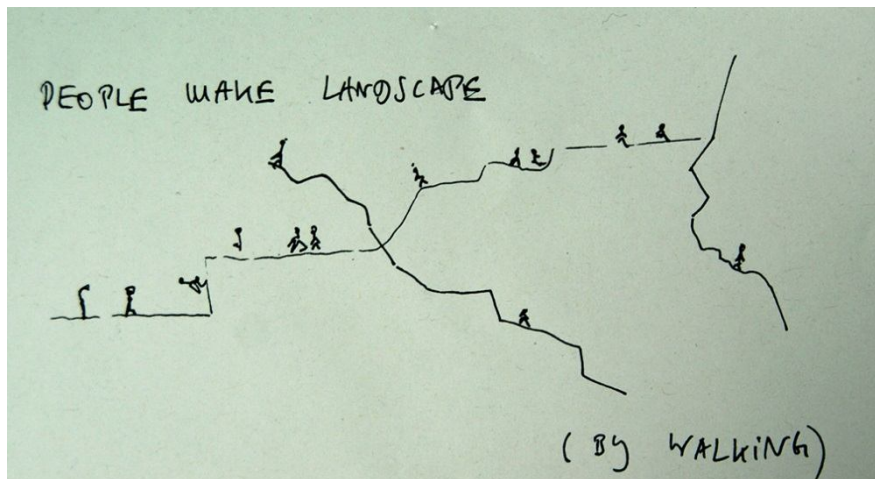 PEOPLE MAKE LANDSCAPE
( By WALKiNG)